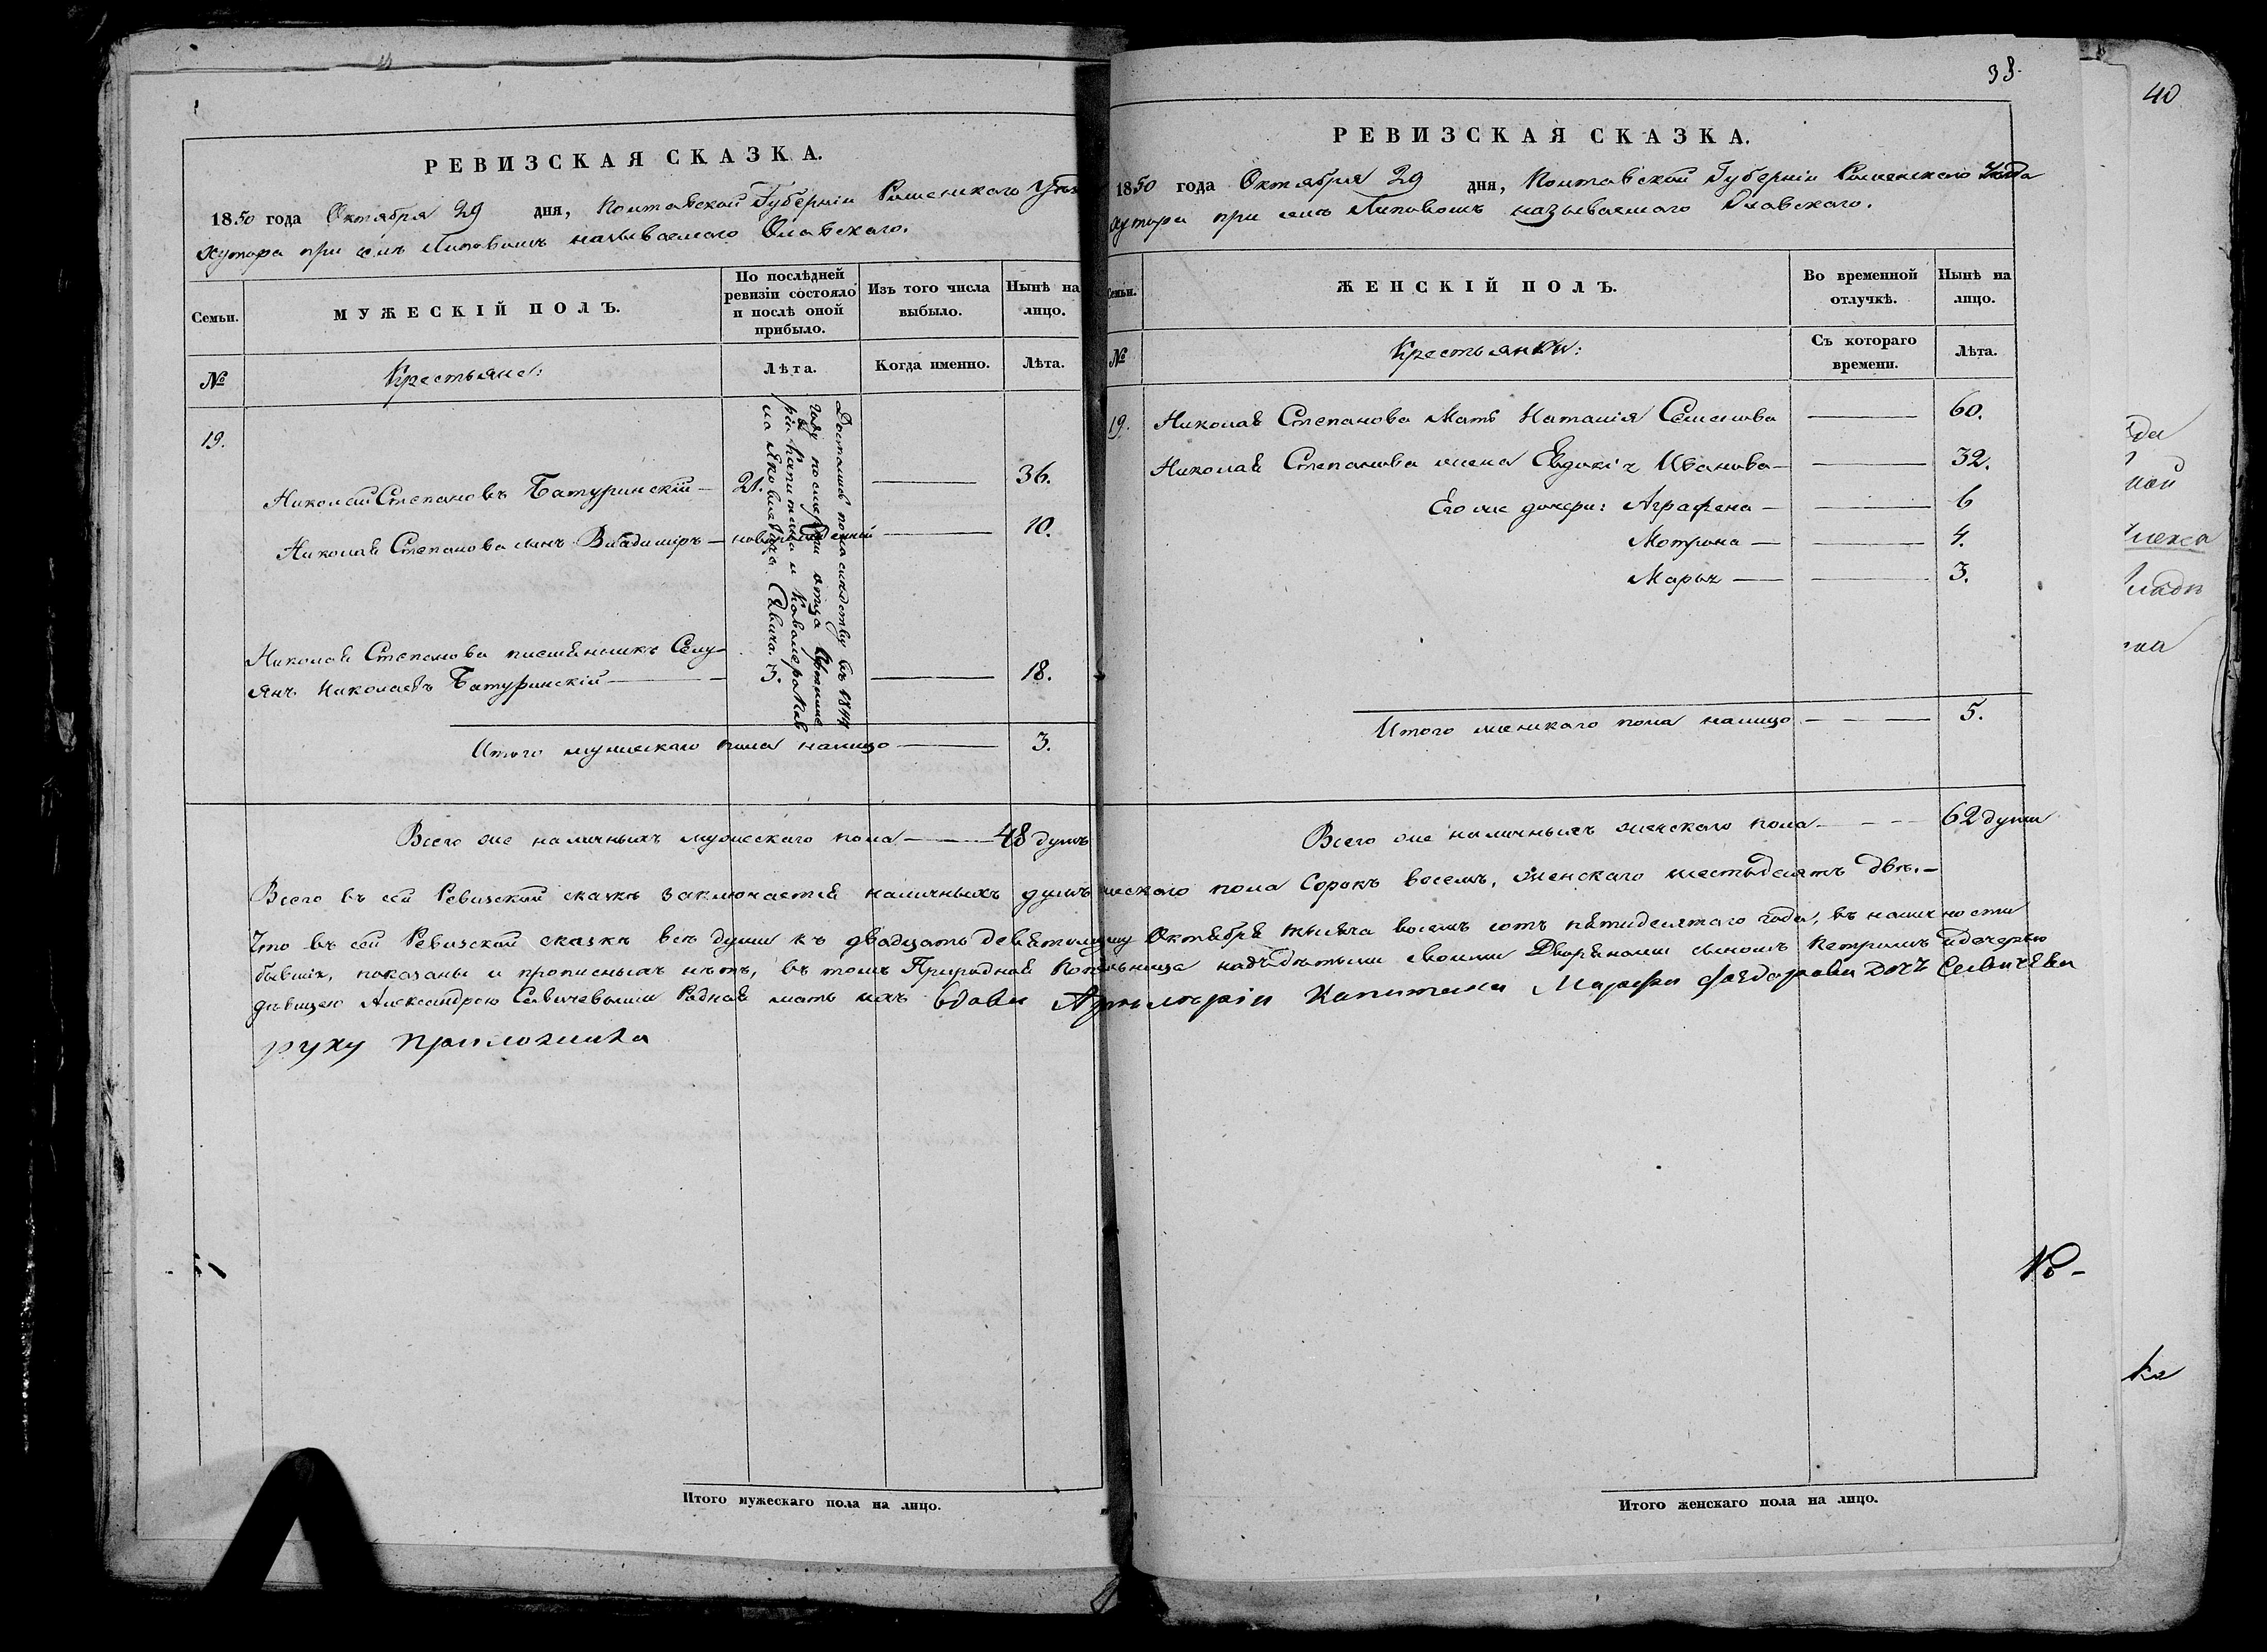 РЕВИЗСКАЯ СКАЗКА.
1850 года Октября 29 дня, Полтавской Губерніи Роменского
Хутора при селѣ Липовомъ называемаго
Семьи.
МУЖЕСКІЙ ПОЛЪ.
По послѣдней ревизіи состояло и послѣ оной прибыло.
Изъ того числа выбыло.
Нынѣ на лицо.
№
Крестьяне:
Лѣта.
Когда именно.
Лѣта.
19.
Николай Степановъ Батуринскій — 21. — 36.
Николая Степанова сынъ Владимиръ — новорожденный — 10.
Николая Степанова племѣнникъ Селу-
янъ Николаевъ Батуринскій — 3. — 18.
Досталисъ по наследству въ 1844
году по смерти отца Артиле
ріи Капитана и Кавалера
Яковлевича Савича.
Итого мужескаго пола налицо — 3.
Всего же наличныхъ мужескаго пола — 48 душъ
38.
РЕВИЗСКАЯ СКАЗКА.
1850 года Октября 29 дня, Полтавской Губерніи Роменского Уѣзда
хутора при селѣ Липовомъ называемаго
Семьи.
ЖЕНСКІЙ ПОЛЪ.
Во временной отлучкѣ.
Нынѣ на лицо.
№
Крестьянки:
Съ котораго времени.
Лѣта.
19. Николая Степанова Мать Наталія Семенова — 60.
Николая Степанова жена Евдокія Иванова — 32.
Его же дочери: Аграфена — 6
Мотрона — 4.
Марья — 3.
Итого женскаго пола налицо — 5.
Всего же наличныхъ женскаго пола — 62 души
Всего въ сей Ревизской сказкѣ заключается наличныхъ душъ мужескаго пола Сорокъ восемь, женскаго шестьдесятъ двѣ. —
Что въ сей Ревизской сказкѣ всѣ души къ двадцать девятому Октября тысяча восемь сотъ пятидесятаго года, въ наличности
бывшія, показаны и прописныхъ нѣтъ, въ томъ Природная надъ дѣтьми своими Дворянами сыномъ Петромъ и дочерью
дѣвицею Александрою Савичевыми Родная мать ихъ вдова Артилеріи Капитана Марфа Федорова дочъ Савичева
руку приложила
Итого мужескаго пола на лицо.
Итого женскаго пола на лицо.
40
ка